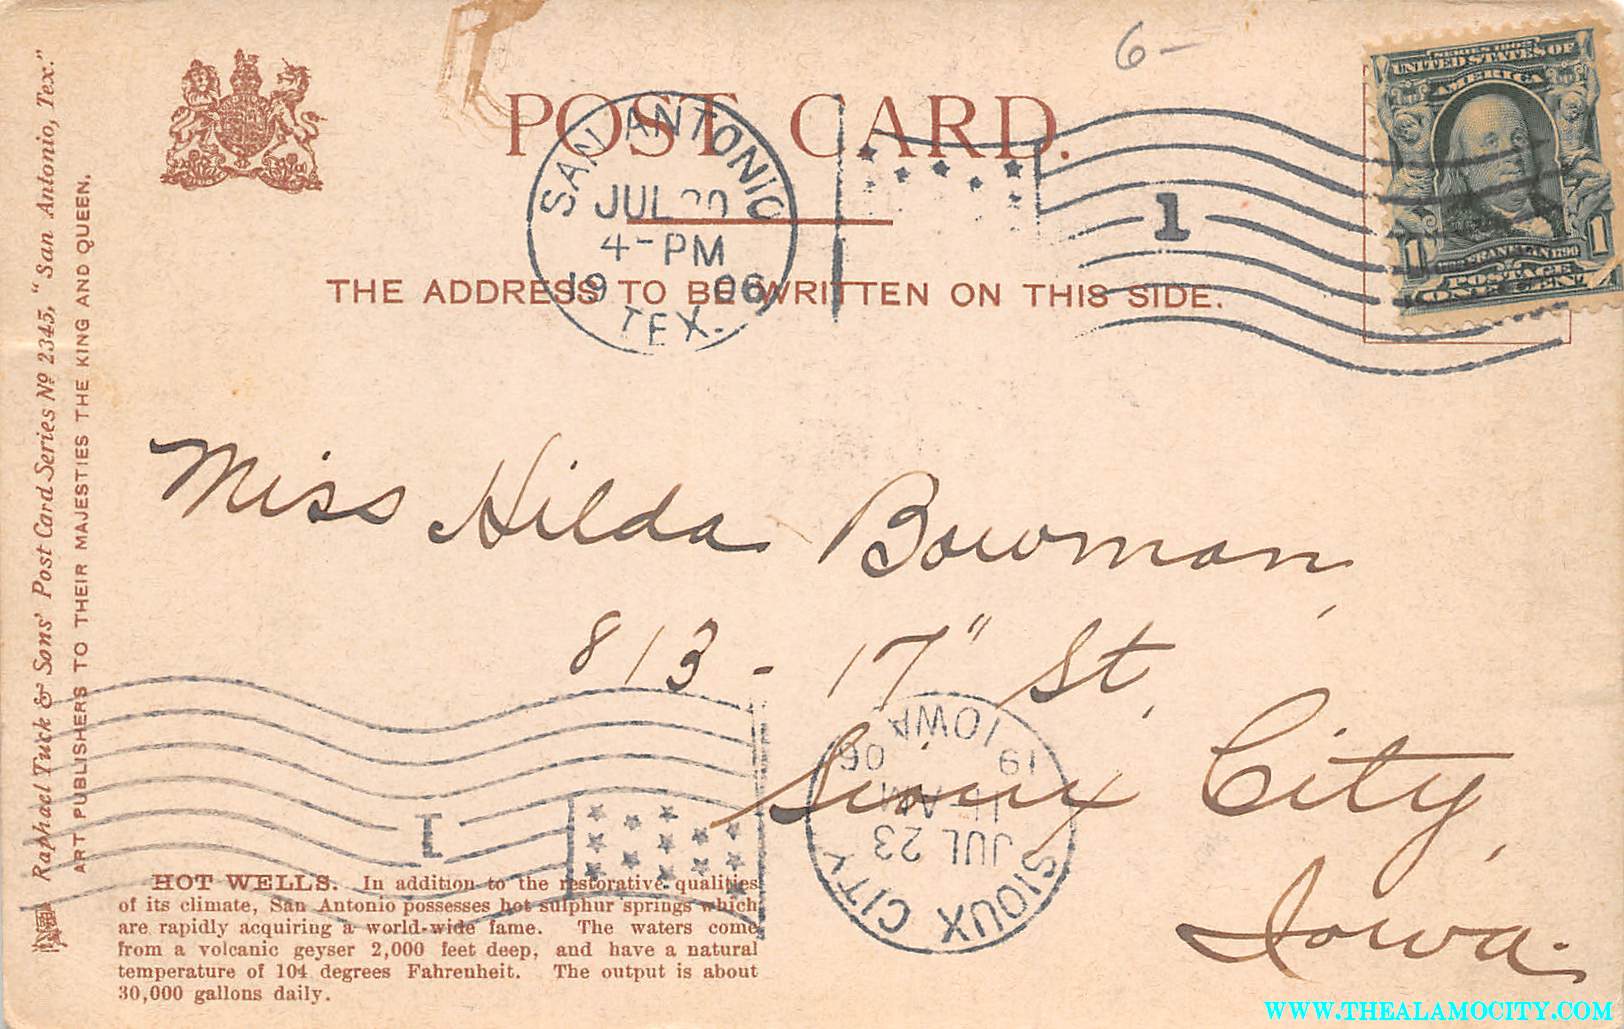 6-
POST CARD.
THE ADDRESS TO BE WRITTEN ON THIS SIDE.
SAN ANTONIO
JUL
4-PM
19 06
TEX.
1
SERIES 1902
UNITED STATES OF
AMERICA
FRANKLIN
POSTAGE
1 1
Raphael Tuck & Sons' Post Card Series No 2345, "San Antonio, Tex."
ART PUBLISHERS TO THEIR MAJESTIES THE KING AND QUEEN.
Miss Hilda Bowman,
813 - 17" St,
Sioux City,
Iowa.
SIOUX CITY
JUL 23
AM
19 06
IOWA
1
HOT WELLS. In addition to the restorative qualities
of its climate, San Antonio possesses hot sulphur springs which
are rapidly acquiring a world-wide fame. The waters come
from a volcanic geyser 2,000 feet deep, and have a natural
temperature of 104 degrees Fahrenheit. The output is about
30,000 gallons daily.
WWW.THEALAMOCITY.COM